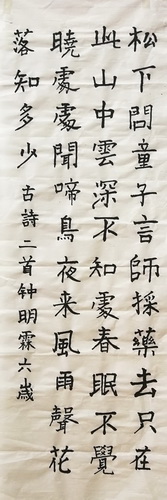 松下問童子言師採藥去只在
此山中雲深不知處春眠不覺
曉處處聞啼鳥夜来風雨聲花
落知多少古詩二首钟明霖六歲